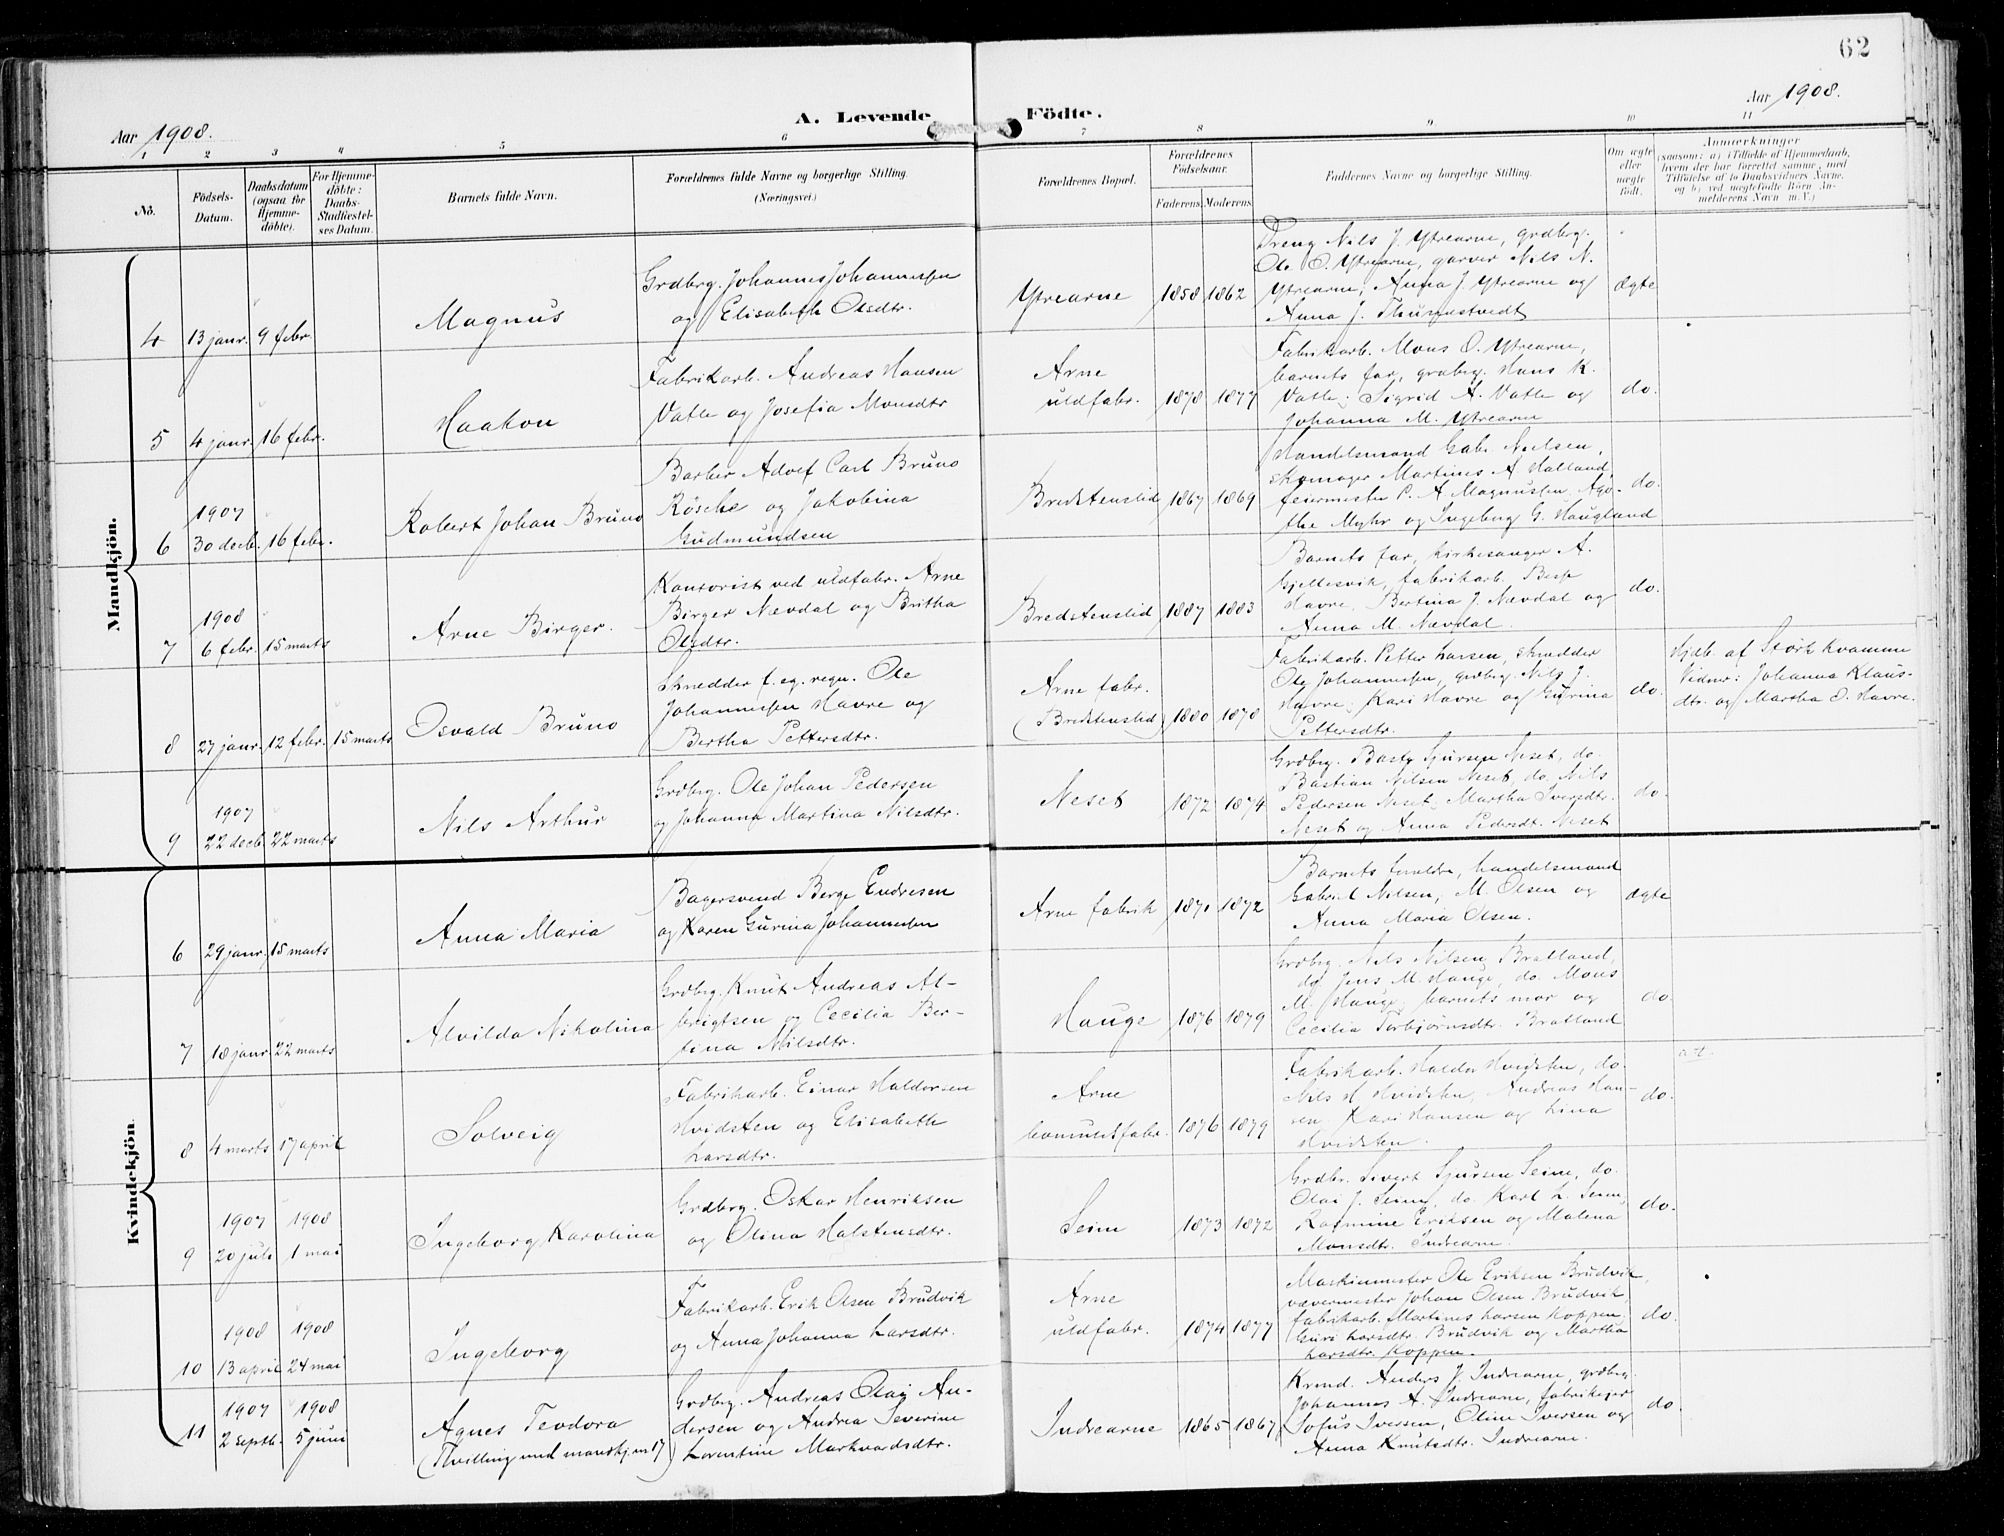 62
Aar 1908.
A. Levende Födte.
Aar 1908.
1 2 3 4 5 6 7 8 9 10 11
No.
Födsels-
Datum.
Daabsdatum
(ogsaa for
Hjemme-
döbte).
For Hjemme-
döbte:
Daabs-
Stadfæstel-
ses Datum.
Barnets fulde Navn.
Forældrenes fulde Navne og borgerlige Stilling.
(Næringsvei.)
Forældrenes Bopæl.
Forældrenes
Födselsaar.
Faderens. Moderens.
Faddernes Navne og borgerlige Stilling.
Om ægte
eller
uægte
födt.
Anmærkninger
(saasom: a) i Tilfælde af Hjemmedaab,
hvem der har forrettet samme, med
Tilföielse af to Daabsvidners Navne,
og b) ved uægtefödte Börn An-
melderens Navn m. V.)
Mandkjön.
4
13 janr.
9 febr.
Magnus
Grdbrg. Johannes Johannessen
og Elisabeth Olsdtr.
Ytrearne
1858
1862
Dreng Nils J. Ytrearne, grdbrg.
Ole O. Ytrearne, garver Nils N.
Ytrearne; Anna J. Ytrearne og
Anna J. Thunestvedt
ægte
5
4 janr.
16 febr.
Haakon
Fabrikarb. Andreas Hansen
Vatle og Josefia Monsdtr
Arne
uldfabr.
1878
1877
Fabrikarb. Mons O. Ytrearne,
barnets far, grdbrg. Hans K.
Vatle; Sigrid A. Vatle og
Johanna M. Ytrearne
do.
6
1907
30 decb.
16 febr.
Robert Johan Bruno
Barber Adolf Carl Bruno
Rösche og Jakobina
Gudmundsen
Bredstenslid
1867
1869
Handelsmand Gabr. Nielsen,
skomager Martines A. Halland,
feiermester P. A. Magnussen, Aga-
the Myhr og Ingeborg G. Haugland
do.
7
1908
6 febr.
15 marts
Arne Birger.
Kontorist ved uldfabr. Arne
Birger Nævdal og Britha
Olsdtr.
Bredstenslid
1887
1883
Barnets far, kirkesanger A.
Gjellesvik, fabrikarb. Besse
Havre, Bertina J. Nævdal og
Anna M. Nævdal.
do.
8
27 janr.
12 febr.
15 marts
Osvald Bruno
Skredder f. eg. regn. Ole
Johannessen Havre og
Bertha Pettersdtr.
Arne fabr.
(Bredstenslid)
1880
1878
Fabrikarb. Petter Larsen, skredder
Ole Johannessen, grdbrg. Nils J.
Havre; Kari Havre og Gurina
Pettersdtr.
do.
Hjdb. af Störk Kvamme
Vidner: Johanna Klaus-
dtr. og Martha O. Havre.
9
1907
22 decb.
22 marts
Nils Arthur
Grdbrg. Ole Johan Pedersen
og Johanna Martina Nilsdtr.
Neset
1872
1874
Grdbrg. Basty Sjursen Neset, do.
Bastian Nilsen Neset, do. Nils
Pedersen Neset; Martha Iversdtr.
Neset og Anna Pedersdt. Neset
do.
Kvindekjön.
6
29 janr.
15 marts
Anna Maria
Bagersvend Berge Endresen
og Karen Gurina Johannessen
Arne fabrik
1871
1872
Barnets forældre, handelsmand
Gabriel Nilsen, M. Olsen og
Anna Maria Olsen.
ægte
7
18 janr.
22 marts
Alvilda Nikolina
Grdbrg. Knut Andreas Al-
brigtsen og Cecilia Ber-
tina Nilsdtr.
Hauge
1876
1879
Grdbrg. Nils Nilsen Bratland,
do. Jens M. Hauge, do. Mons
M. Hauge; barnets mor og
Cecilia Torbjørnsdtr. Bratland
do.
8
4 marts
17 april
Solveig
Fabrikarb. Einar Haldorsen
Hvidsten og Elisabeth
Larsdtr.
Arne
bomuldsfabr.
1876
1879
Fabrikarb. Haldor Hvidsten, do.
Nils H. Hvidsten, Andreas Han-
sen, Kari Hansen og Lina
Hvidsten.
do.
9
1907
20 juli
1908
1 mai
Ingeborg Karolina
Grdbrg. Oskar Henriksen
og Olina Halstensdtr.
Seim
1873
1872
Grdbr. Sivert Sjursen Seim, do.
Olai J. Seim, do. Karl L. Seim,
Rasmine Eriksen og Malena
Monsdtr. Indrearne.
do.
10
1908
13 april
1908
24 mai
Ingeborg
Fabrikarb. Erik Olsen Brudvik
og Anna Johanna Larsdtr.
Arne
uldfabr.
1874
1877
Maskinmester Ole Eriksen Brudvik,
vævermester Johan Olsen Brudvik,
fabrikarb. Martines Larsen Koppen,
Guri Larsdtr. Brudvik og Martha
Larsdtr. Koppen.
do.
11
1907
2 septb.
1908
5 juni
Agnes Teodora
(Tvilling med mandkjøn 17)
Grdbrg. Andreas Olai An-
dersen og Andrea Severine
Lorentine Markvardsdtr.
Indrearne
1865
1867
Krmd. Anders J. Indrearne, grdbrg.
Johannes A. Indrearne, fabrikeier
Sofus Iversen, Oline Iversen og
Anna Knutsdtr. Indrearne.
do.